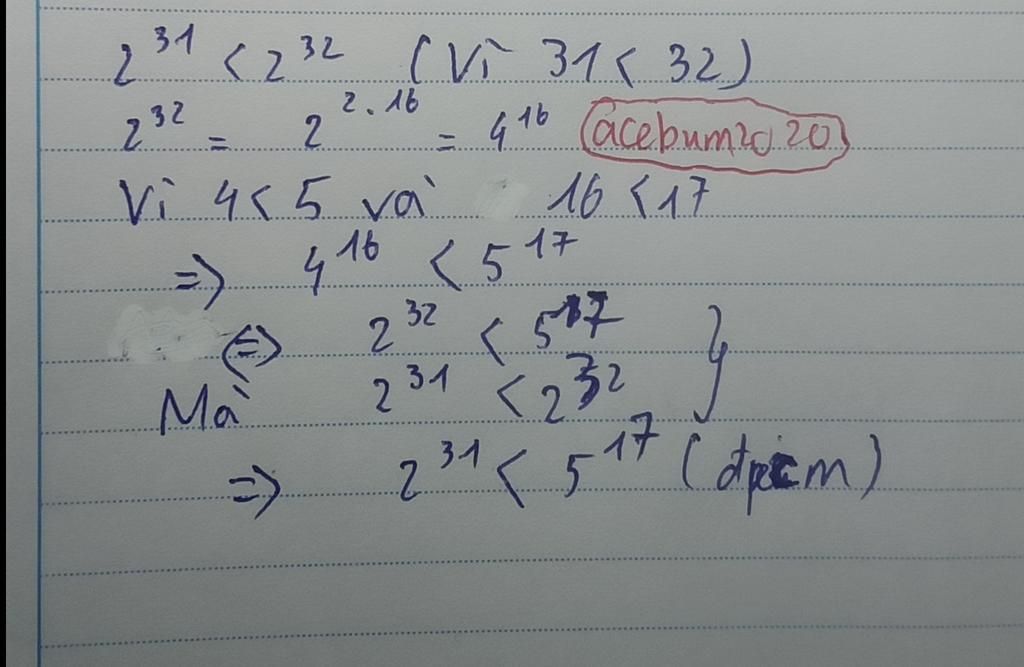 2^31 < 2^32 (Vì 31 < 32)
2^32 = 2^2.16 = 4^16 acebum2020
Vì 4 < 5 và 16 < 17
=> 4^16 < 5^17
<=> 2^32 < 5^17 }
Mà 2^31 < 2^32
=> 2^31 < 5^17 (đpcm)